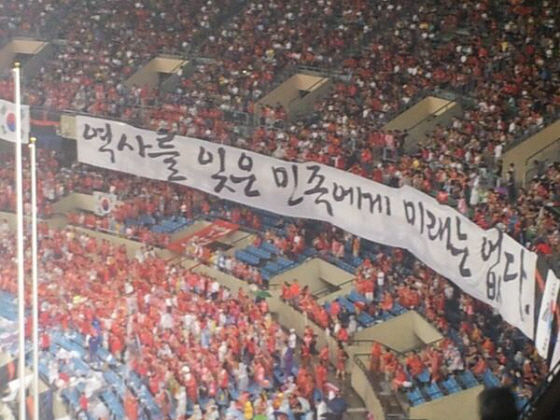 역사를 잊은 민족에게 미래는 없다.